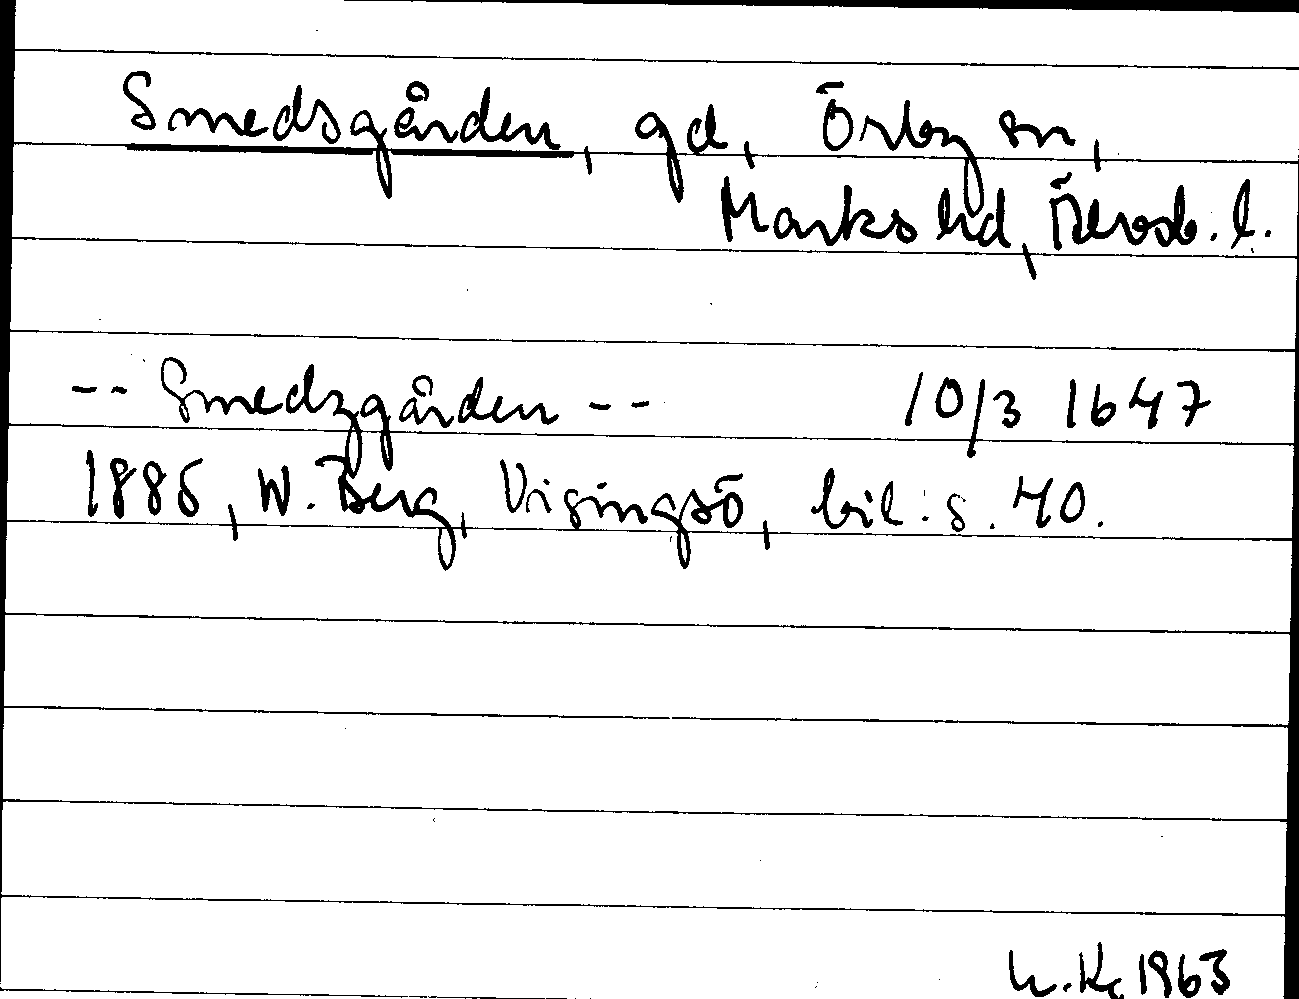 Smedsgården, gd, Örby sn,
Marks hd, Älvsb. l.
-- Smedzgården -- 10/3 1647
1885, W. Berg, Visingsö, bil. s. 40.
1963